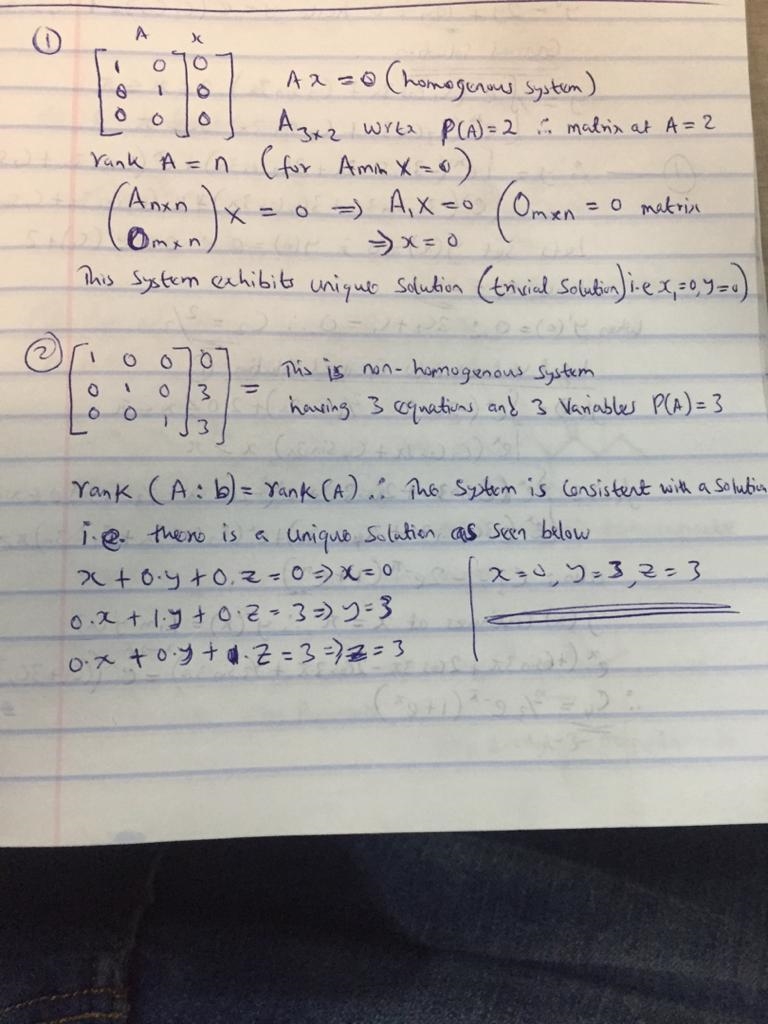 ①
A x
[1 0 | 0
0 1 | 0
0 0 | 0]
Ax = 0 (homogenous system)
A3x2 wrtx P(A)=2 ∴ matrix at A = 2
rank A = n (for Amxn X = 0)
(Anxn
Omxn) X = 0 ⇒ A, X = 0 (Omxn = 0 matrix
⇒ x = 0
This system exhibits unique solution (trivial solution) i.e x, = 0, y = 0)
②
[1 0 0 | 0
0 1 0 | 3
0 0 1 | 3] =
This is non-homogenous system
having 3 equations and 3 variables P(A) = 3
rank (A : b) = rank (A) ∴ The system is consistent with a solution
i.e. there is a unique solution as seen below
x + 0.y + 0.z = 0 ⇒ x = 0
0.x + 1.y + 0.z = 3 ⇒ y = 3
0.x + 0.y + 1.z = 3 ⇒ z = 3
x = 0, y = 3, z = 3